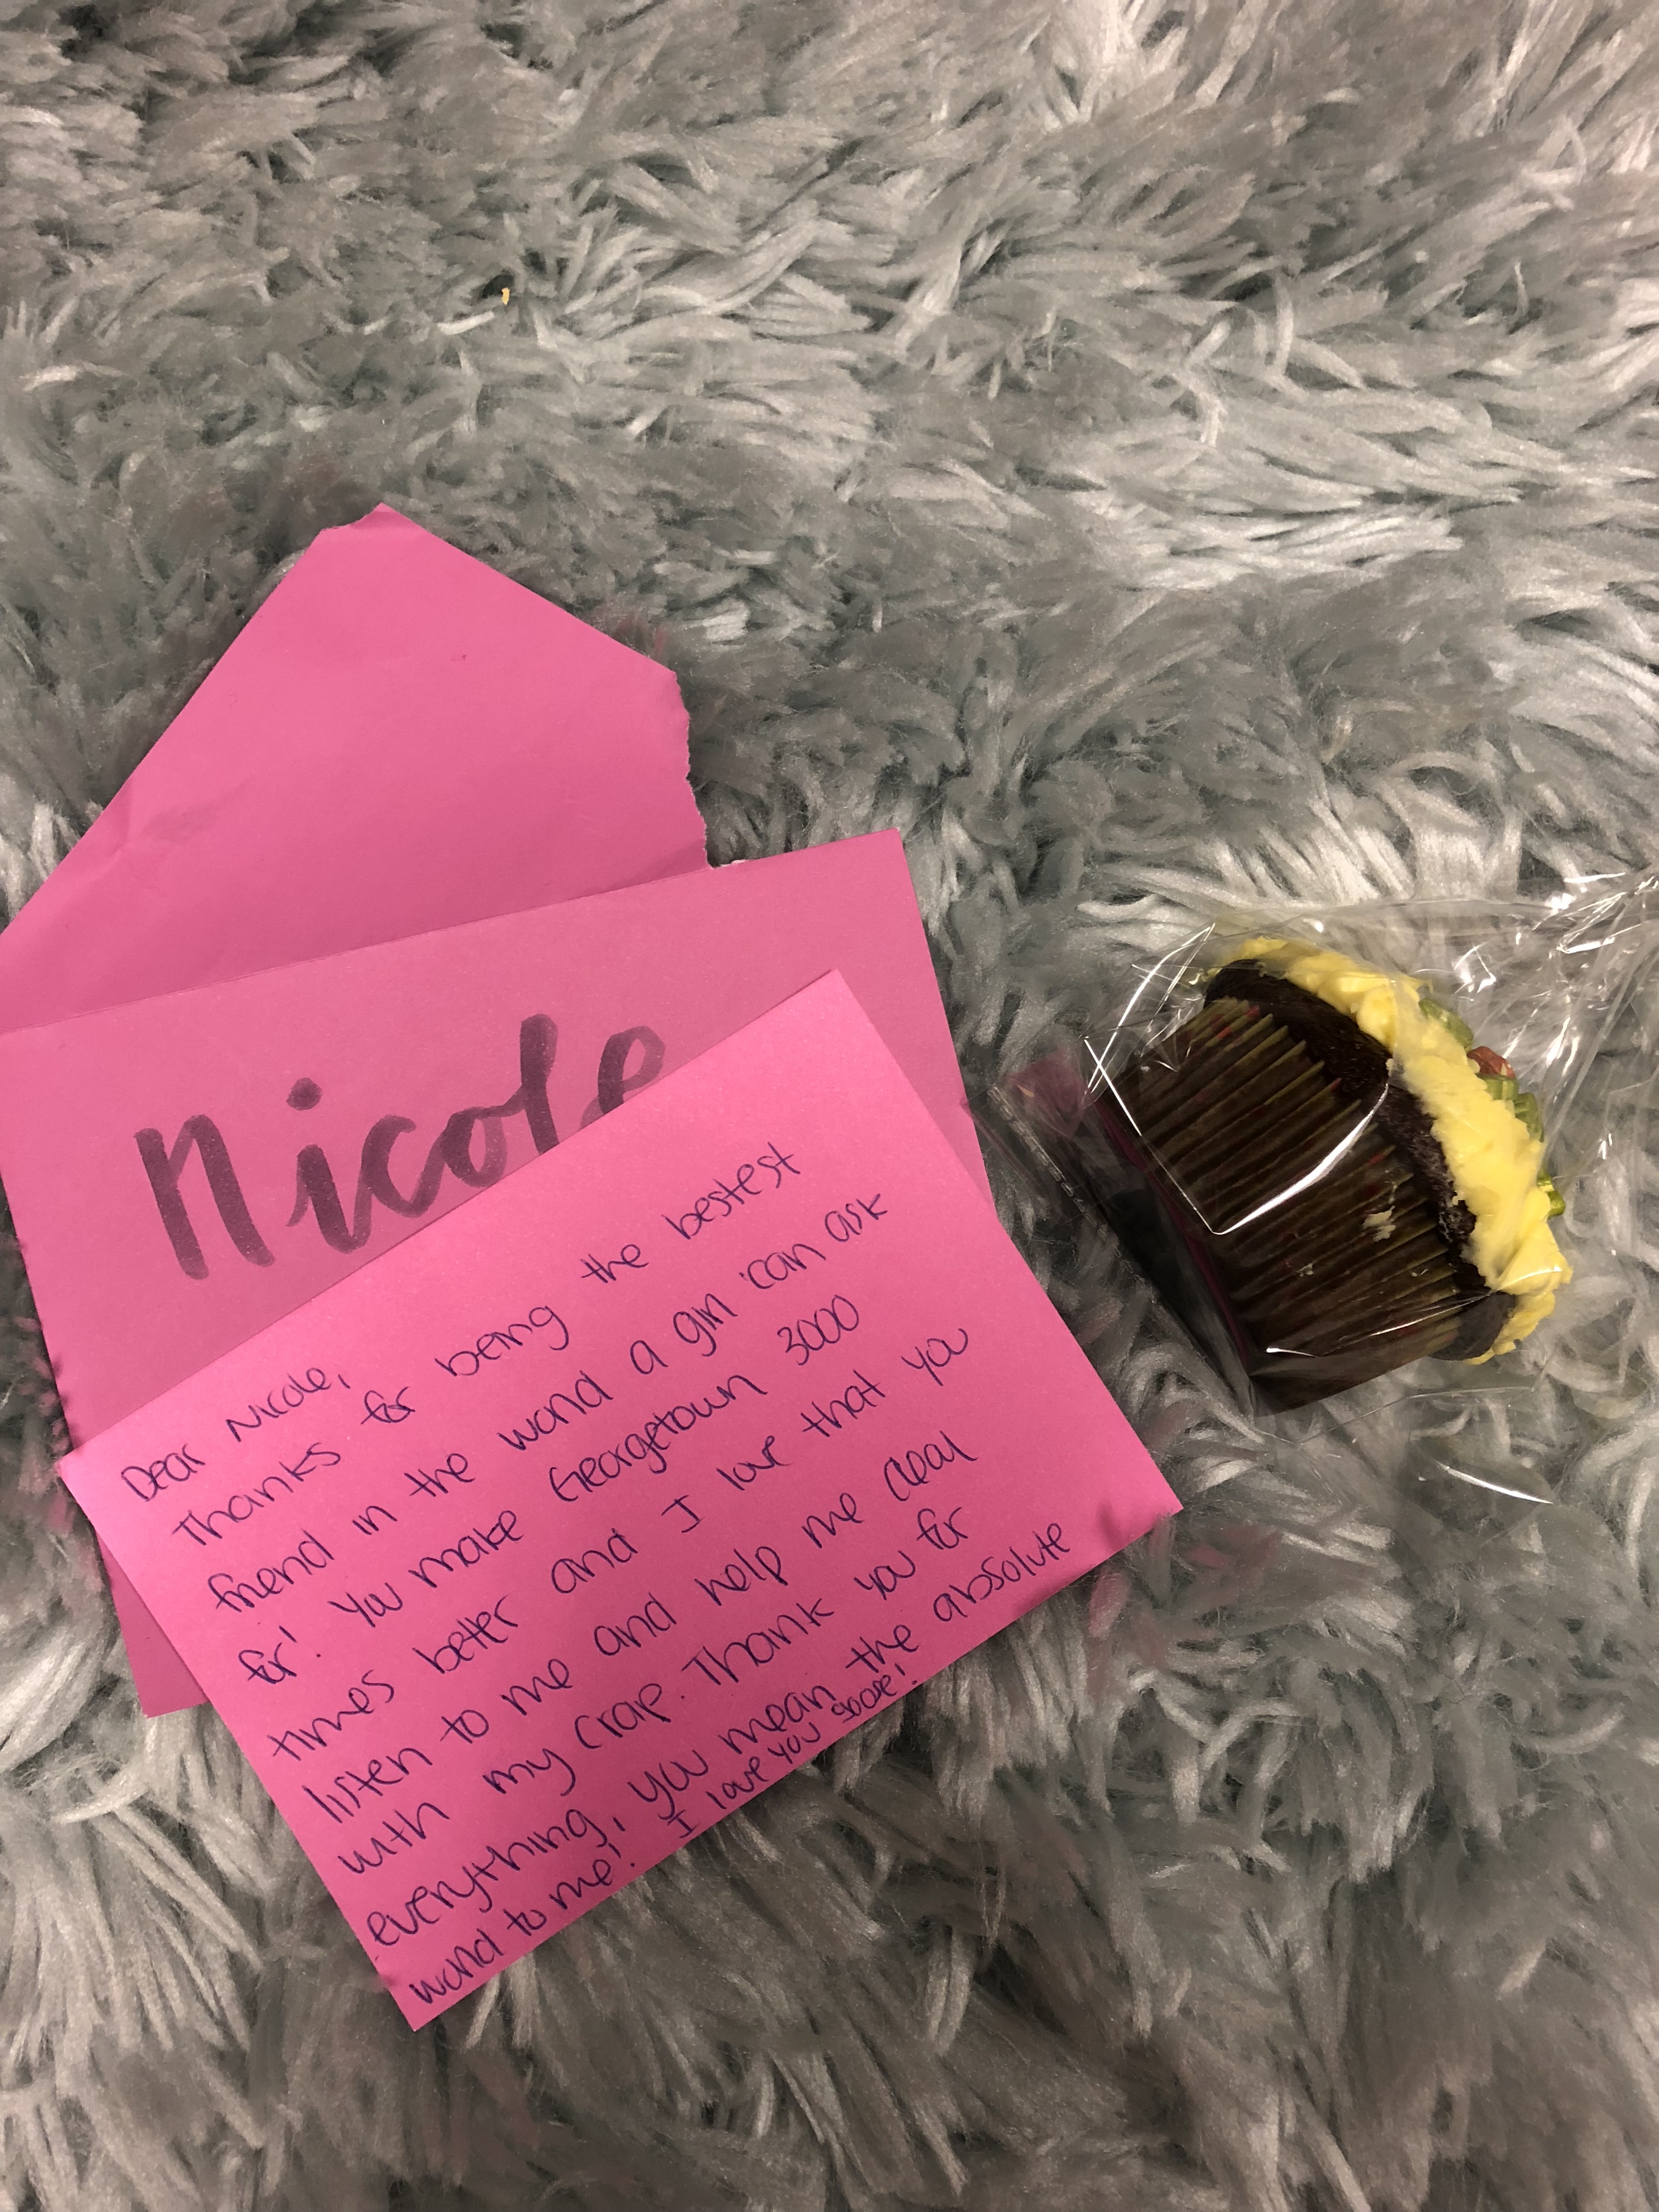 Nicole
Dear Nicole,
Thanks for being the bestest
friend in the world a girl can ask
for! You make Georgetown 3000
times better and I love that you
listen to me and help me deal
with my crap. Thank you for
everything, you mean the absolute
world to me! I love you soooo!